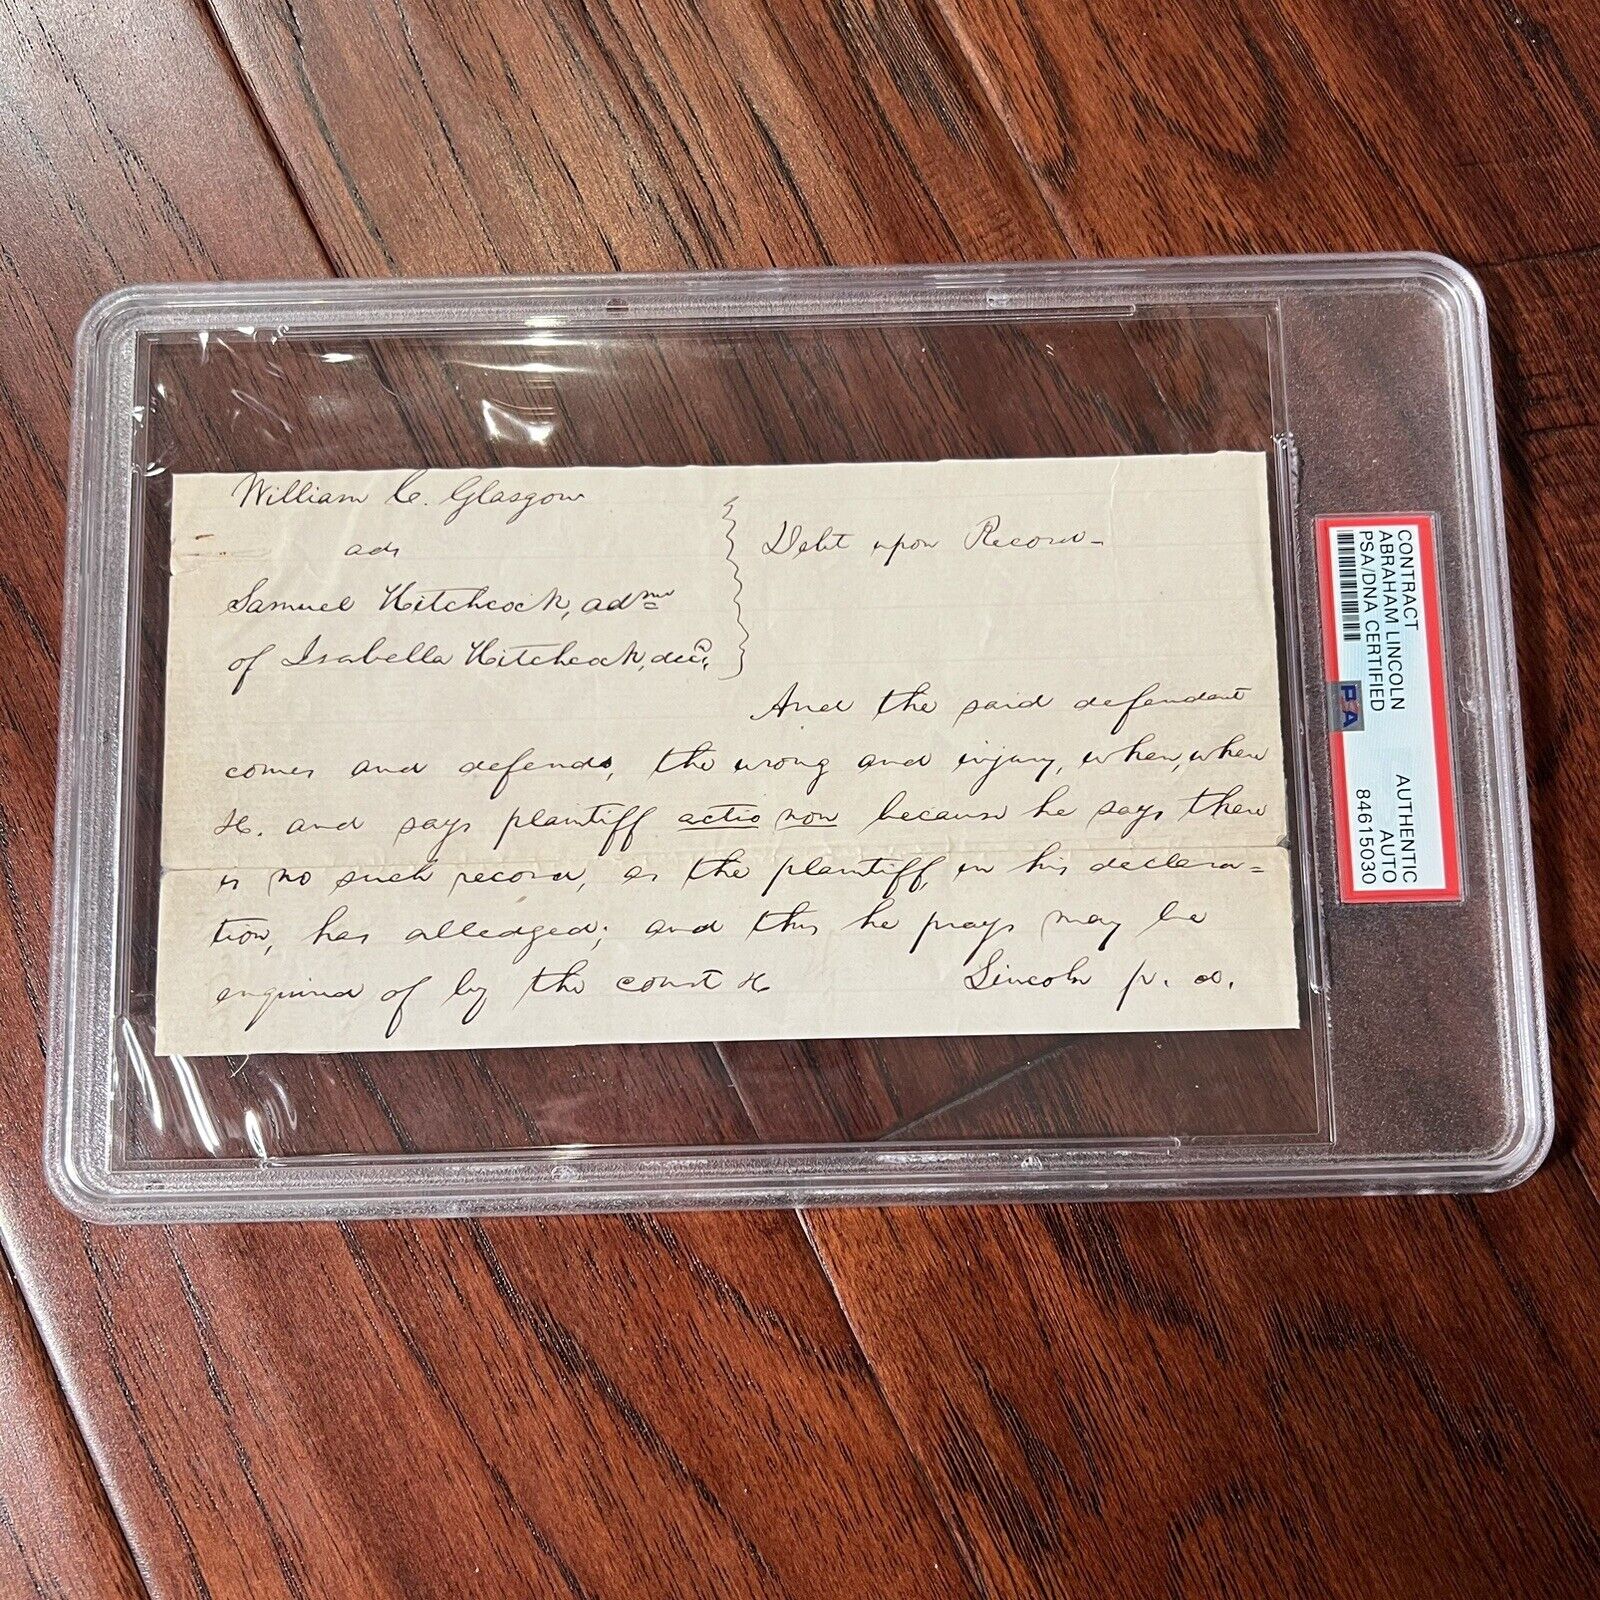 William C. Glasgow
ads
Samuel Hitchcock, admr
of Isabella Hitchcock, decd.
Debt upon Record-
And the said defendant
comes and defends, the wrong and injury, when, where
&c. and says plaintiff actio non because he says there
is no such record, as the plaintiff, in his declara=
tion, has alledged; and this he prays may be
enquired of by the court &c
Lincoln p. d.
CONTRACT
ABRAHAM LINCOLN
PSA/DNA CERTIFIED
PSA
AUTHENTIC
AUTO
84615030